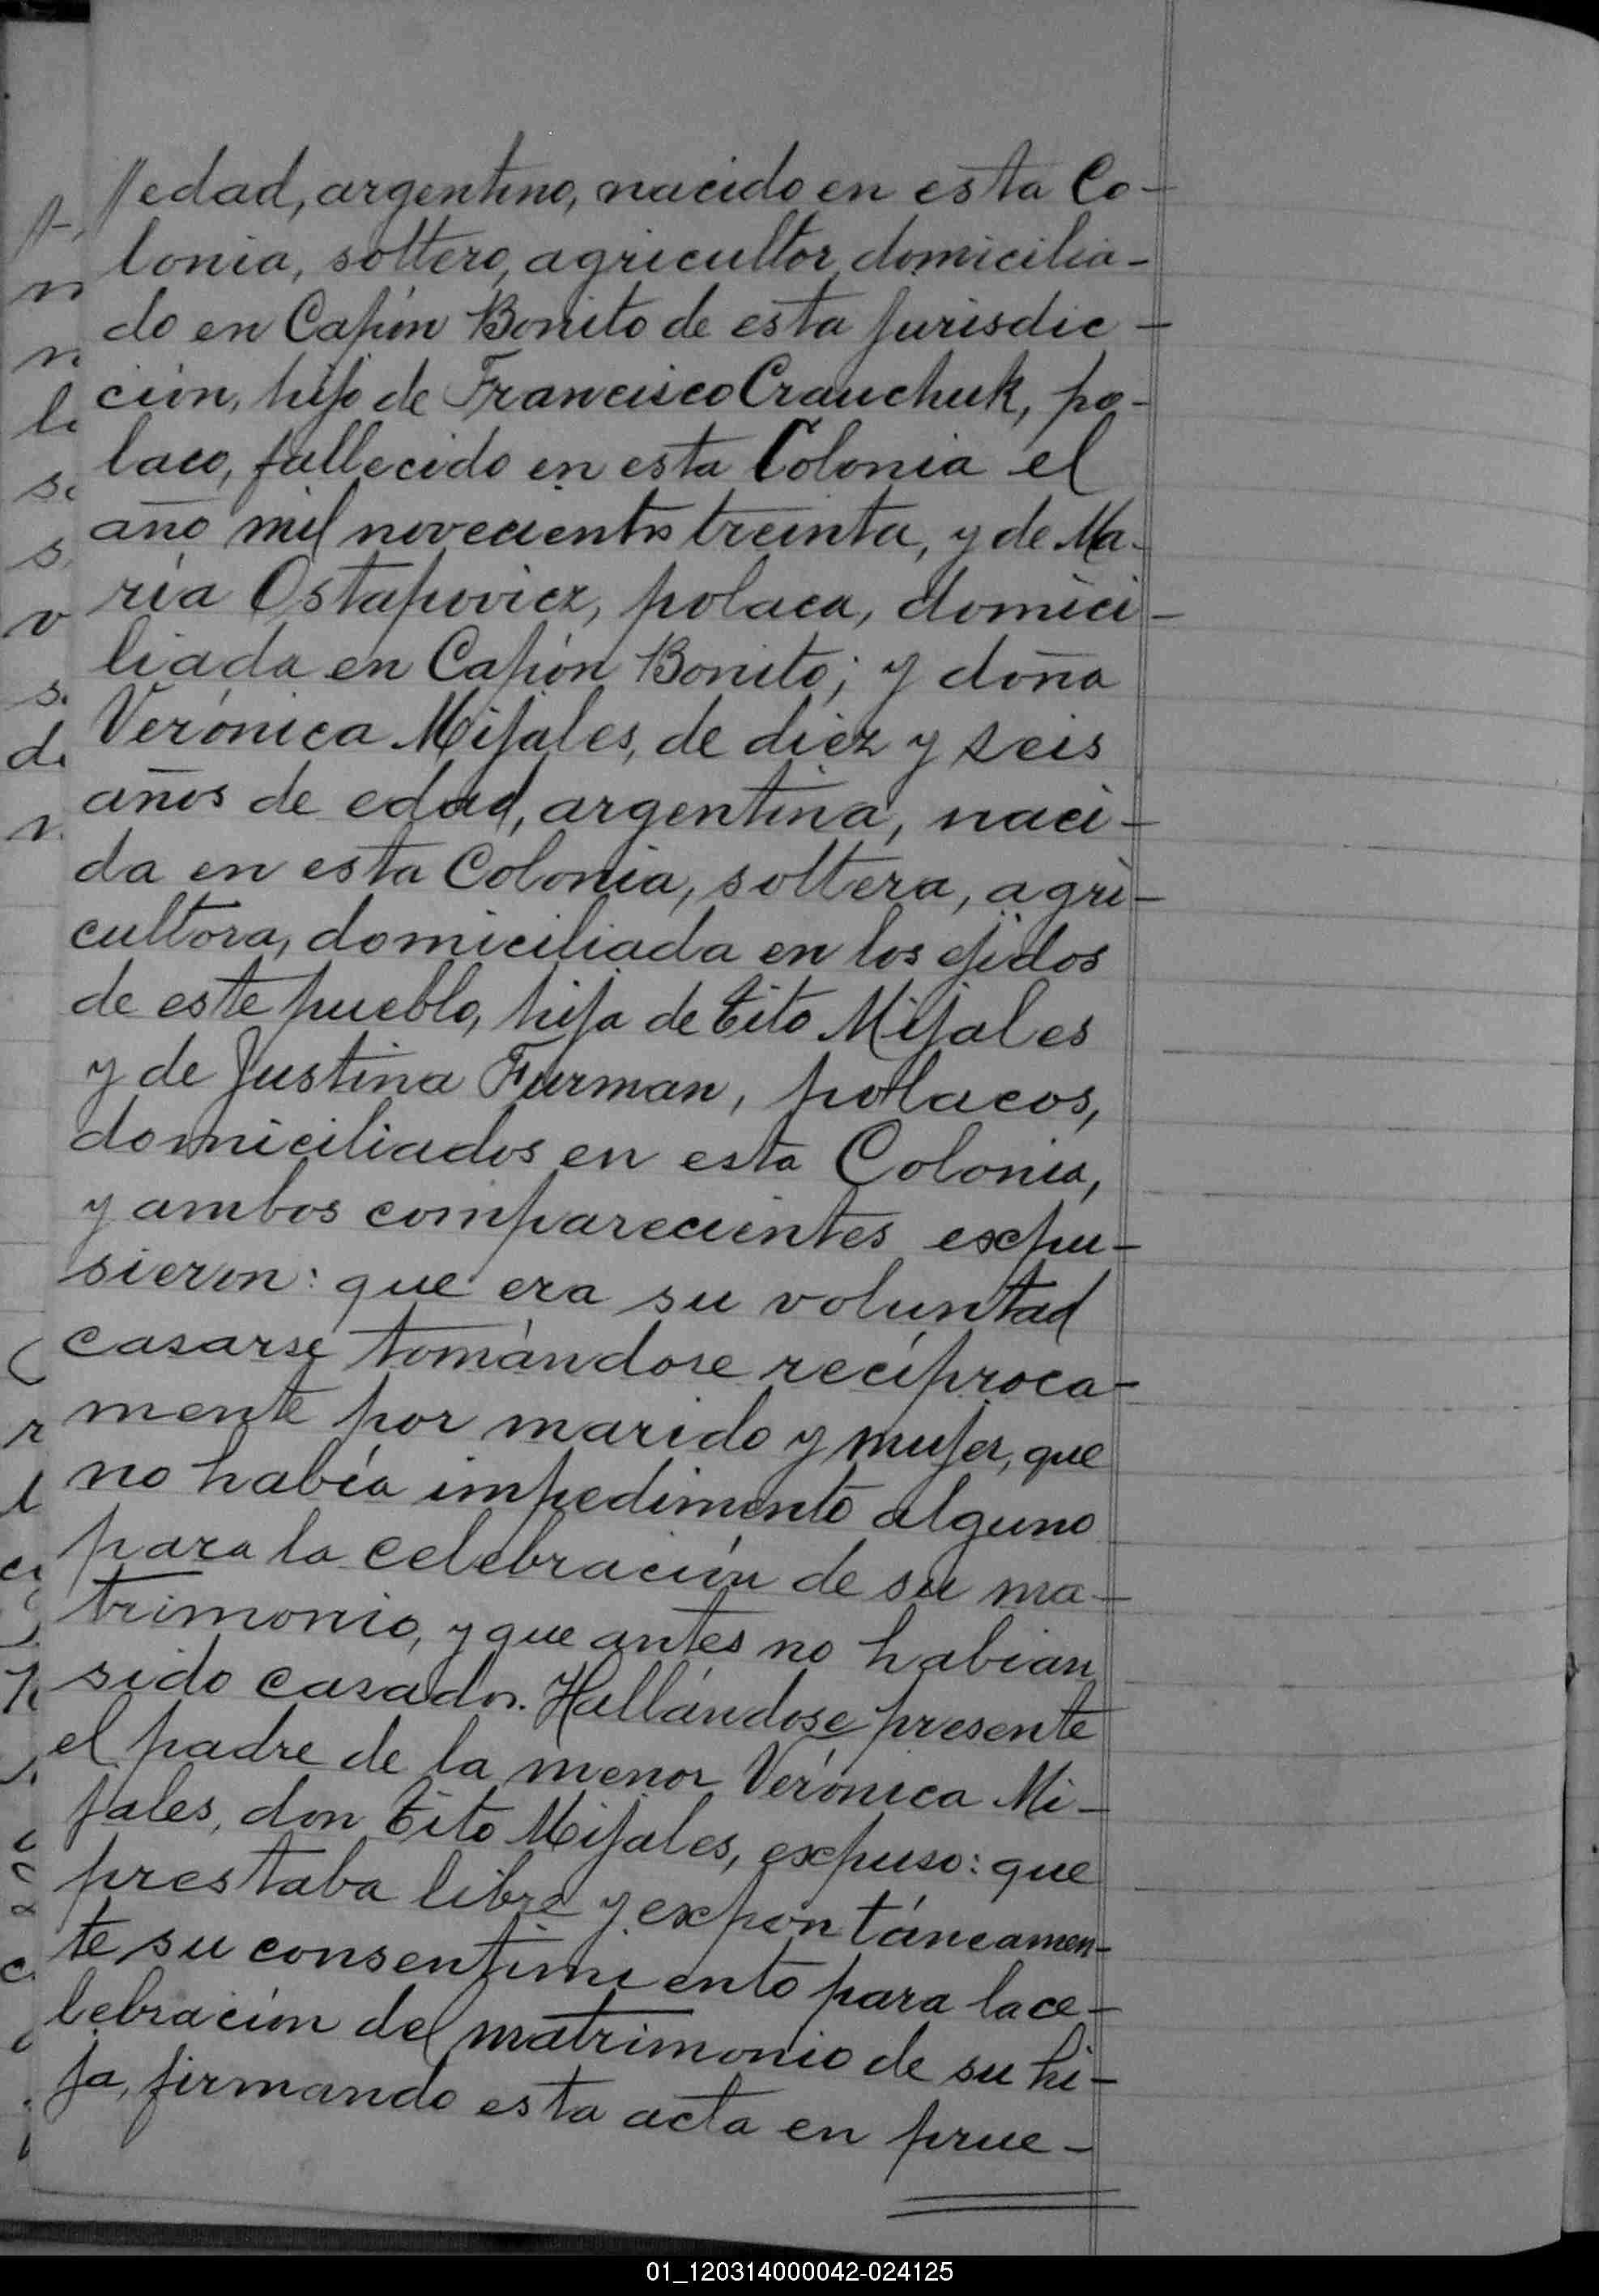 //edad, argentino, nacido en esta Co-
lonia, soltero, agricultor, domicilia-
do en Capón Bonito de esta Jurisdic-
ción, hijo de Francisco Crauchuk, po-
laco, fallecido en esta Colonia el
año mil novecientos treinta, y de Ma-
ría Ostapovicz, polaca, domici-
liada en Capón Bonito; y doña
Verónica Mijales, de diez y seis
años de edad, argentina, naci-
da en esta Colonia, soltera, agri-
cultora, domiciliada en los ejidos
de este pueblo, hija de Tito Mijales
y de Justina Furman, polacos,
domiciliados en esta Colonia,
y ambos comparecientes expu-
sieron: que era su voluntad
casarse tomándose recíproca-
mente por marido y mujer, que
no había impedimento alguno
para la celebración de su ma-
trimonio, y que antes no habian
sido casados. Hallándose presente
el padre de la menor Verónica Mi-
jales, don Tito Mijales, expuso: que
prestaba libre y expontáneamen-
te su consentimiento para la ce-
lebración del matrimonio de su hi-
ja, firmando esta acta en prue-
01_120314000042-024125